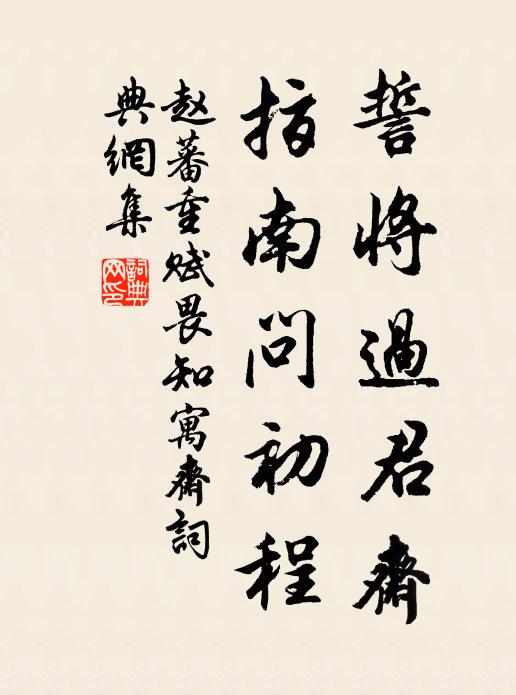 誓將過君齋
指南問初程
赵蕃重赋畏知寓齋詞
典網集
詞典
网印